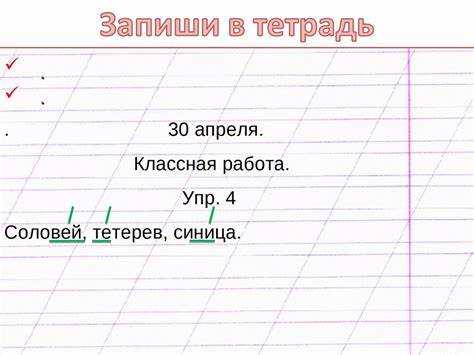 Запиши в тетрадь
.
.
.
30 апреля.
Классная работа.
Упр. 4
Соловей, тетерев, синица.